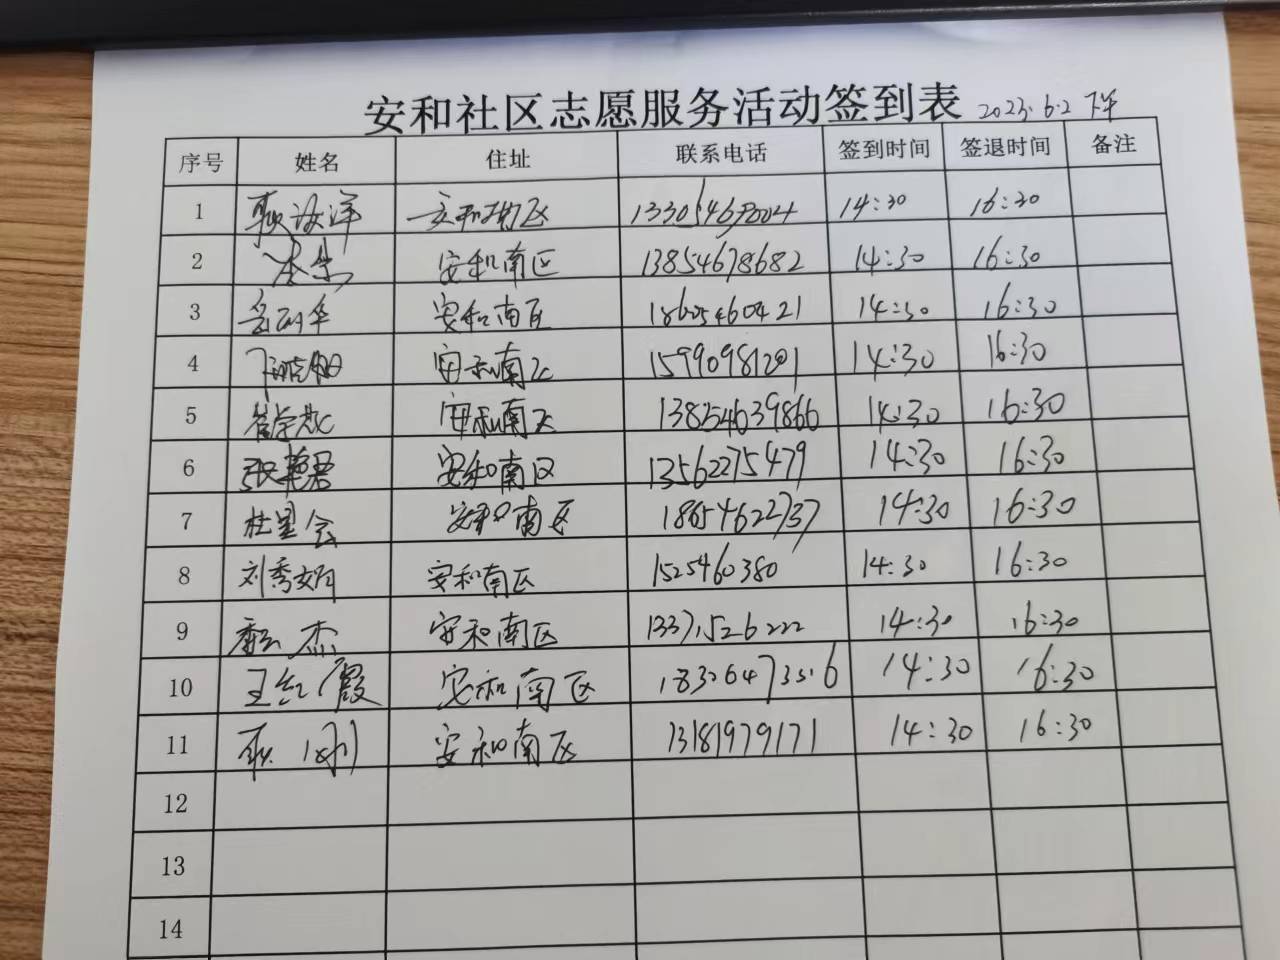 安和社区志愿服务活动签到表 2023.6.2 下午
序号 姓名 住址 联系电话 签到时间 签退时间 备注
1 海洋 安和南区 14:30 16:30
2 安和南区 13854678682 14:30 16:30
3 安和南区 18605460421 14:30 16:30
4 安和南区 15990981201 14:30 16:30
5 安和南区 13854639866 14:30 16:30
6 张艳君 安和南区 13562275479 14:30 16:30
7 杜星会 安和南区 18654622737 14:30 16:30
8 刘秀娟 安和南区 1525460380 14:30 16:30
9 杰 安和南区 13371526222 14:30 16:30
10 王红霞 安和南区 14:30 16:30
11 安和南区 13181979171 14:30 16:30
12
13
14